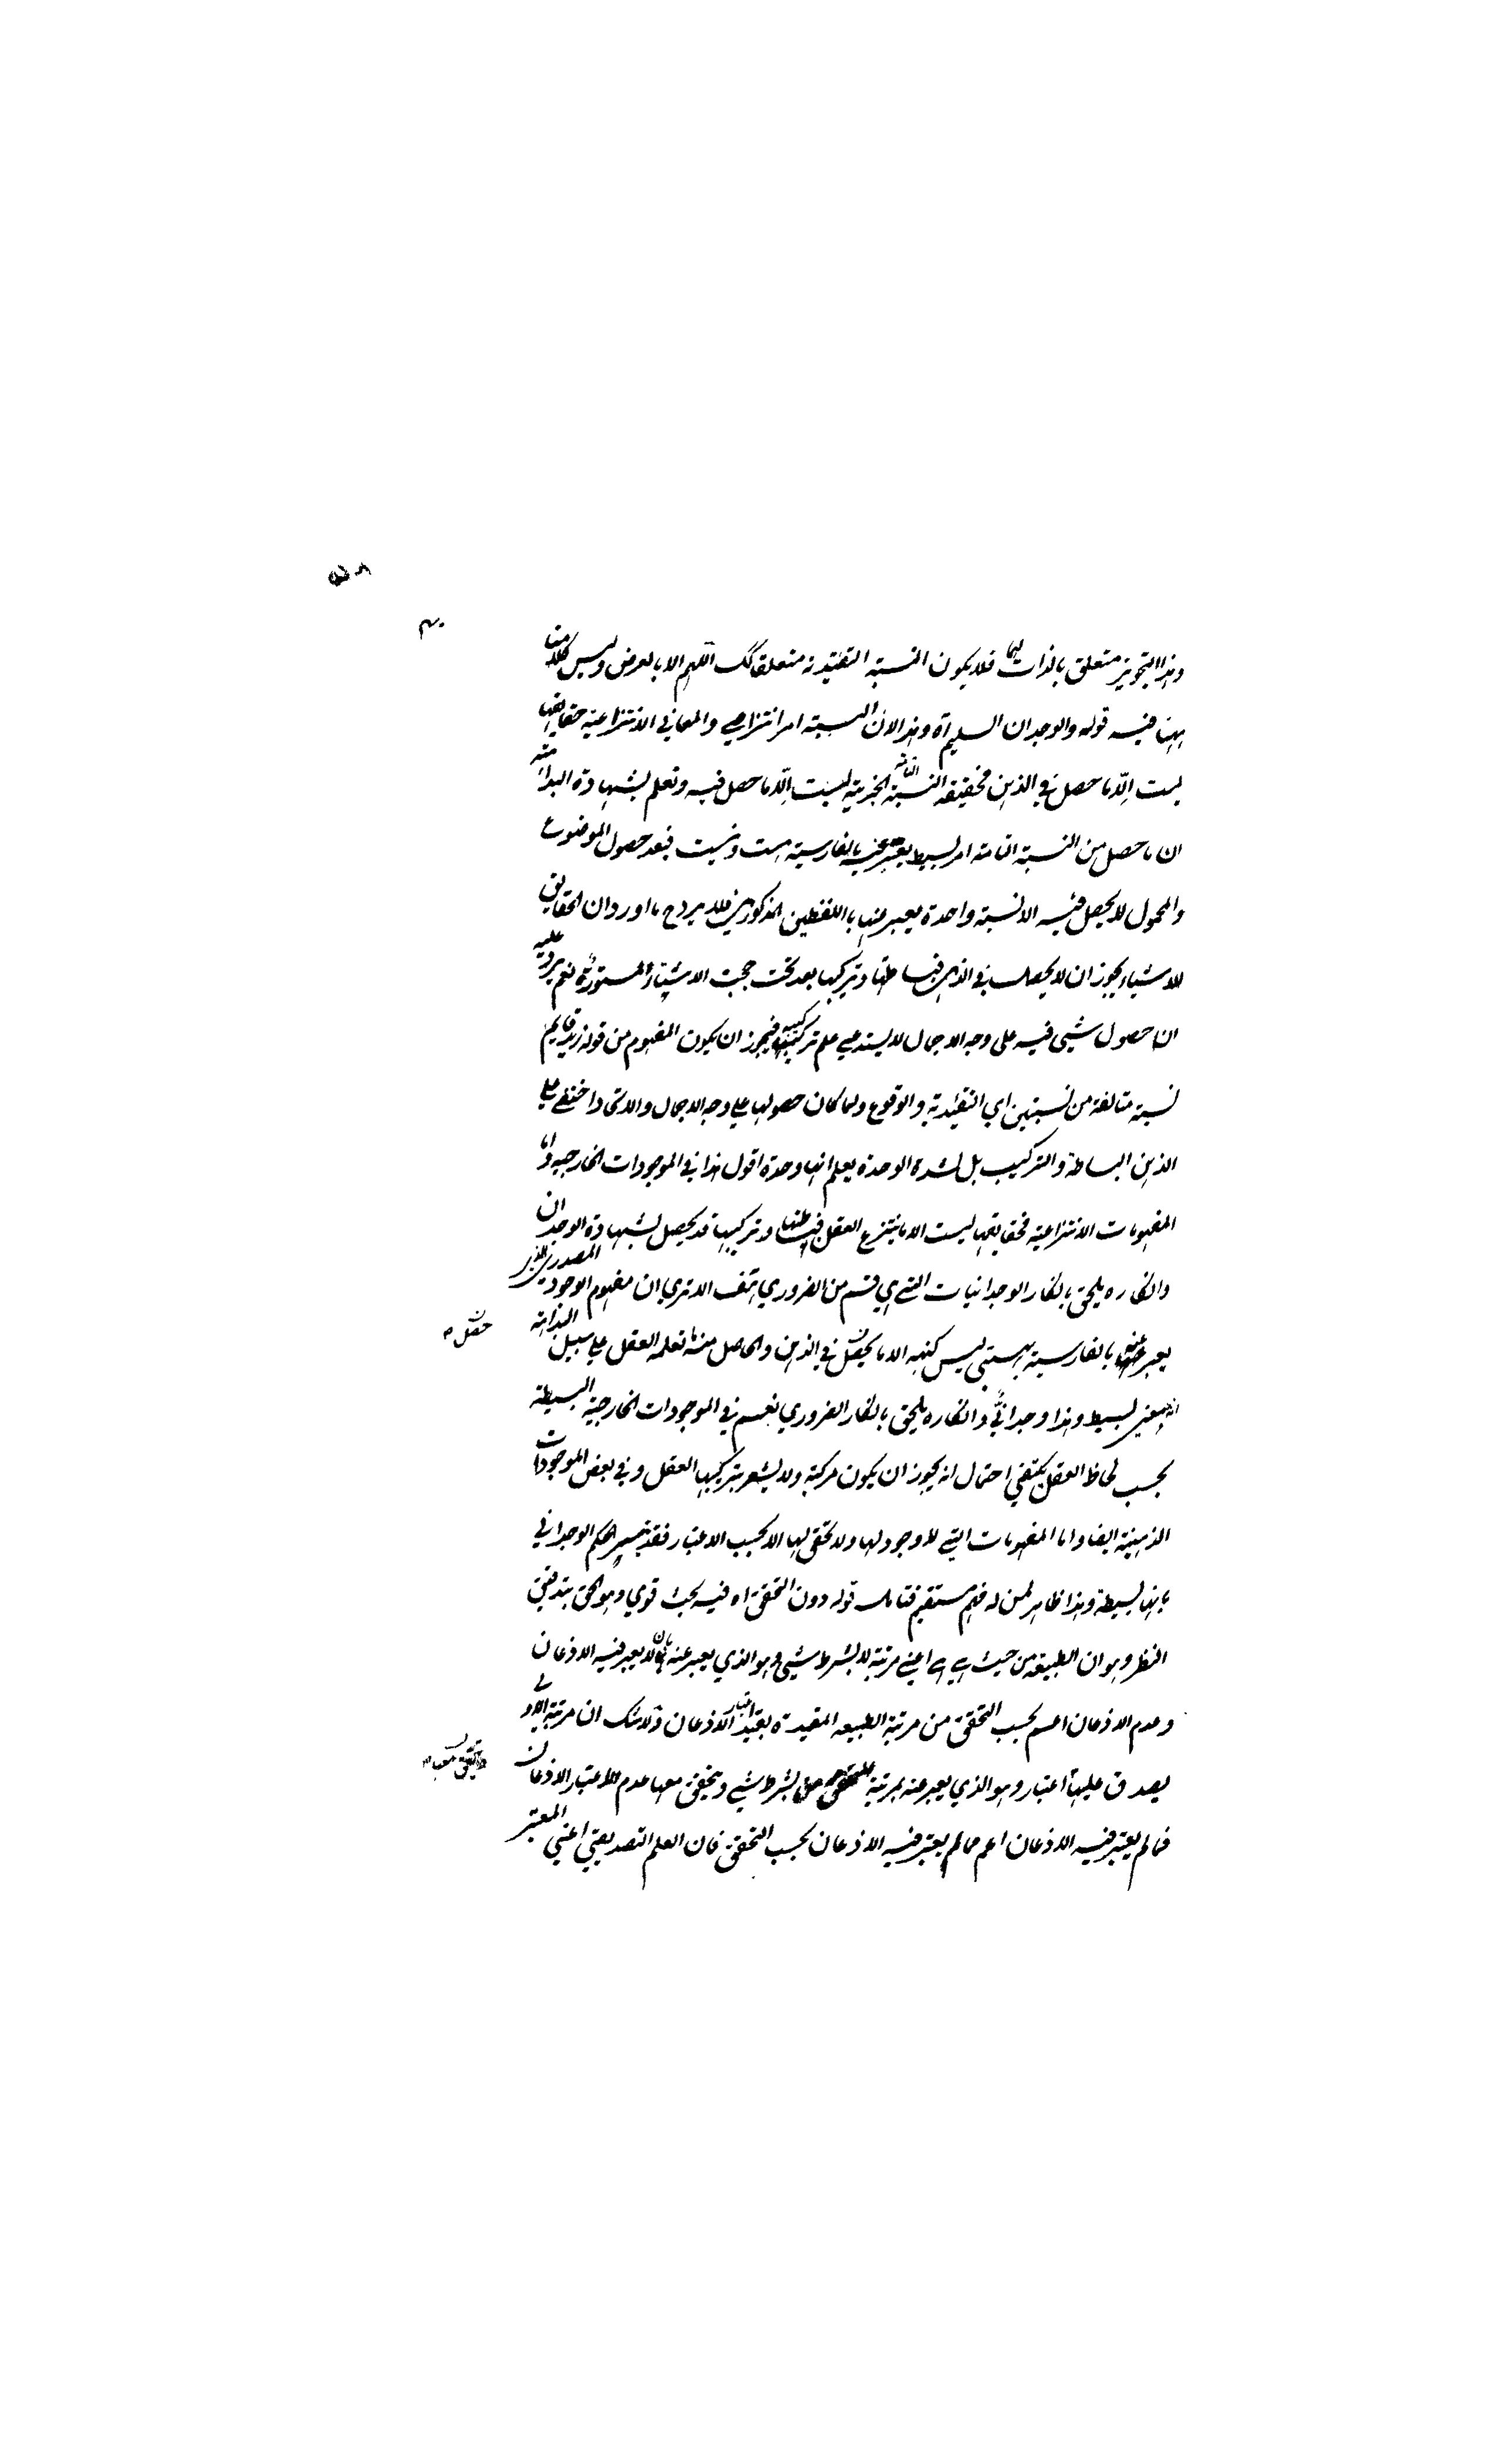 وهذا التجويز متعلق بالذات لهما فلا يكون النسبة التقئيدية متعلقا لك اللهم الا بالعرض وليس كلامنا
ههنا فيه قوله والوجدان السليم آه وهذا لان النسبة امر انتزاعي والمعاني الانتزاعية حقايقها
ليست الّا ما حصل في الذهن فحقيقة النسبة التامة الخبرية ليست الّا ما حصل فيه وتعلم بشهادة البداهة
ان ما حصل من النسبة التامة امر بسيط يعبر عنه بالفارسية هست ونيست فبعد حصول الموضوع
والمحمول لا يحصل فيه الا نسبة واحدة يعبر عنها باللفظين المذكورين فلا يرد ح ما اورد ان الحقايق
الاشياء يجوز ان لا يحصل في الذهن فبساطتها وتركبها بعد تحت حجب الاشياء المستورة نعم يرد عليه
ان حصول شيئ فيه على وجه الاجمال لا يستدعي علم تركيبه فيجوز ان يكون المفهوم من قولنا زيد قايم
نسبة متالفة من نسبتين اي التقئيدية والوقوع ولما كان حصولها علي وجه الاجمال والاتحاد اختفي علي
الذهن البساطة والتركيب بل لشدة الوحدة يعلم انها وحدة اقول هذا في الموجودات الخارجية واما
المفهومات الانتزاعية فحقايقها ليست الا ما ينتزع العقل فبساطتها وتركيبها قد يحصل بشهادة الوجدان
وانكاره يلحق بانكار الوجدانيات التي هي قسم من الضروري الا تري ان مفهوم الوجود المصدري الذي
يعبر عنه بالفارسية بهستي ليس كنهه الا ما يحصل في الذهن والحاصل منه ما تعلمه العقل علي سبيل البداهة
انه معني بسيط وهذا وجداني وانكاره يلحق بانكار الضروري نعم في الموجودات الخارجية البسيطة
بحسب لحاظ العقل يكتفي احتمال انه يجوز ان يكون مركبة ولا يشعر بتركيبها العقل وفي بعض الموجودات
الذهنية ايضا واما المفهومات التي لا وجود لها ولا تحقق لها الا بحسب الاعتبار فقد يتيسر الحكم الوجداني
بانها بسيطة وهذا ظاهر لمن له فهم مستقيم فتامل قوله دون التحقق اه فيه بحث قوي وهو الحق بتدقيق
النظر وهو ان الطبيعة من حيث هي هي اعني مرتبة لا بشرط شيئ وهو الذي يعبر عنه بان لا يعتبر فيه الاذعان
وعدم الاذعان اعم بحسب التحقق من مرتبة الطبيعه المقيدة بقيد اعتبار الاذعان ولا شك ان مرتبة الاولي
يصدق عليها اعتبار وهو الذي يعبر عنه بمرتبة بشرط شيئ ويتحقق معها عدم الاعتبار الاذعان
فما لم يعتبر فيه الاذعان اعم مما لم يعتبر فيه الاذعان بحسب التحقق فان العلم التصديقي اعني المعتبر